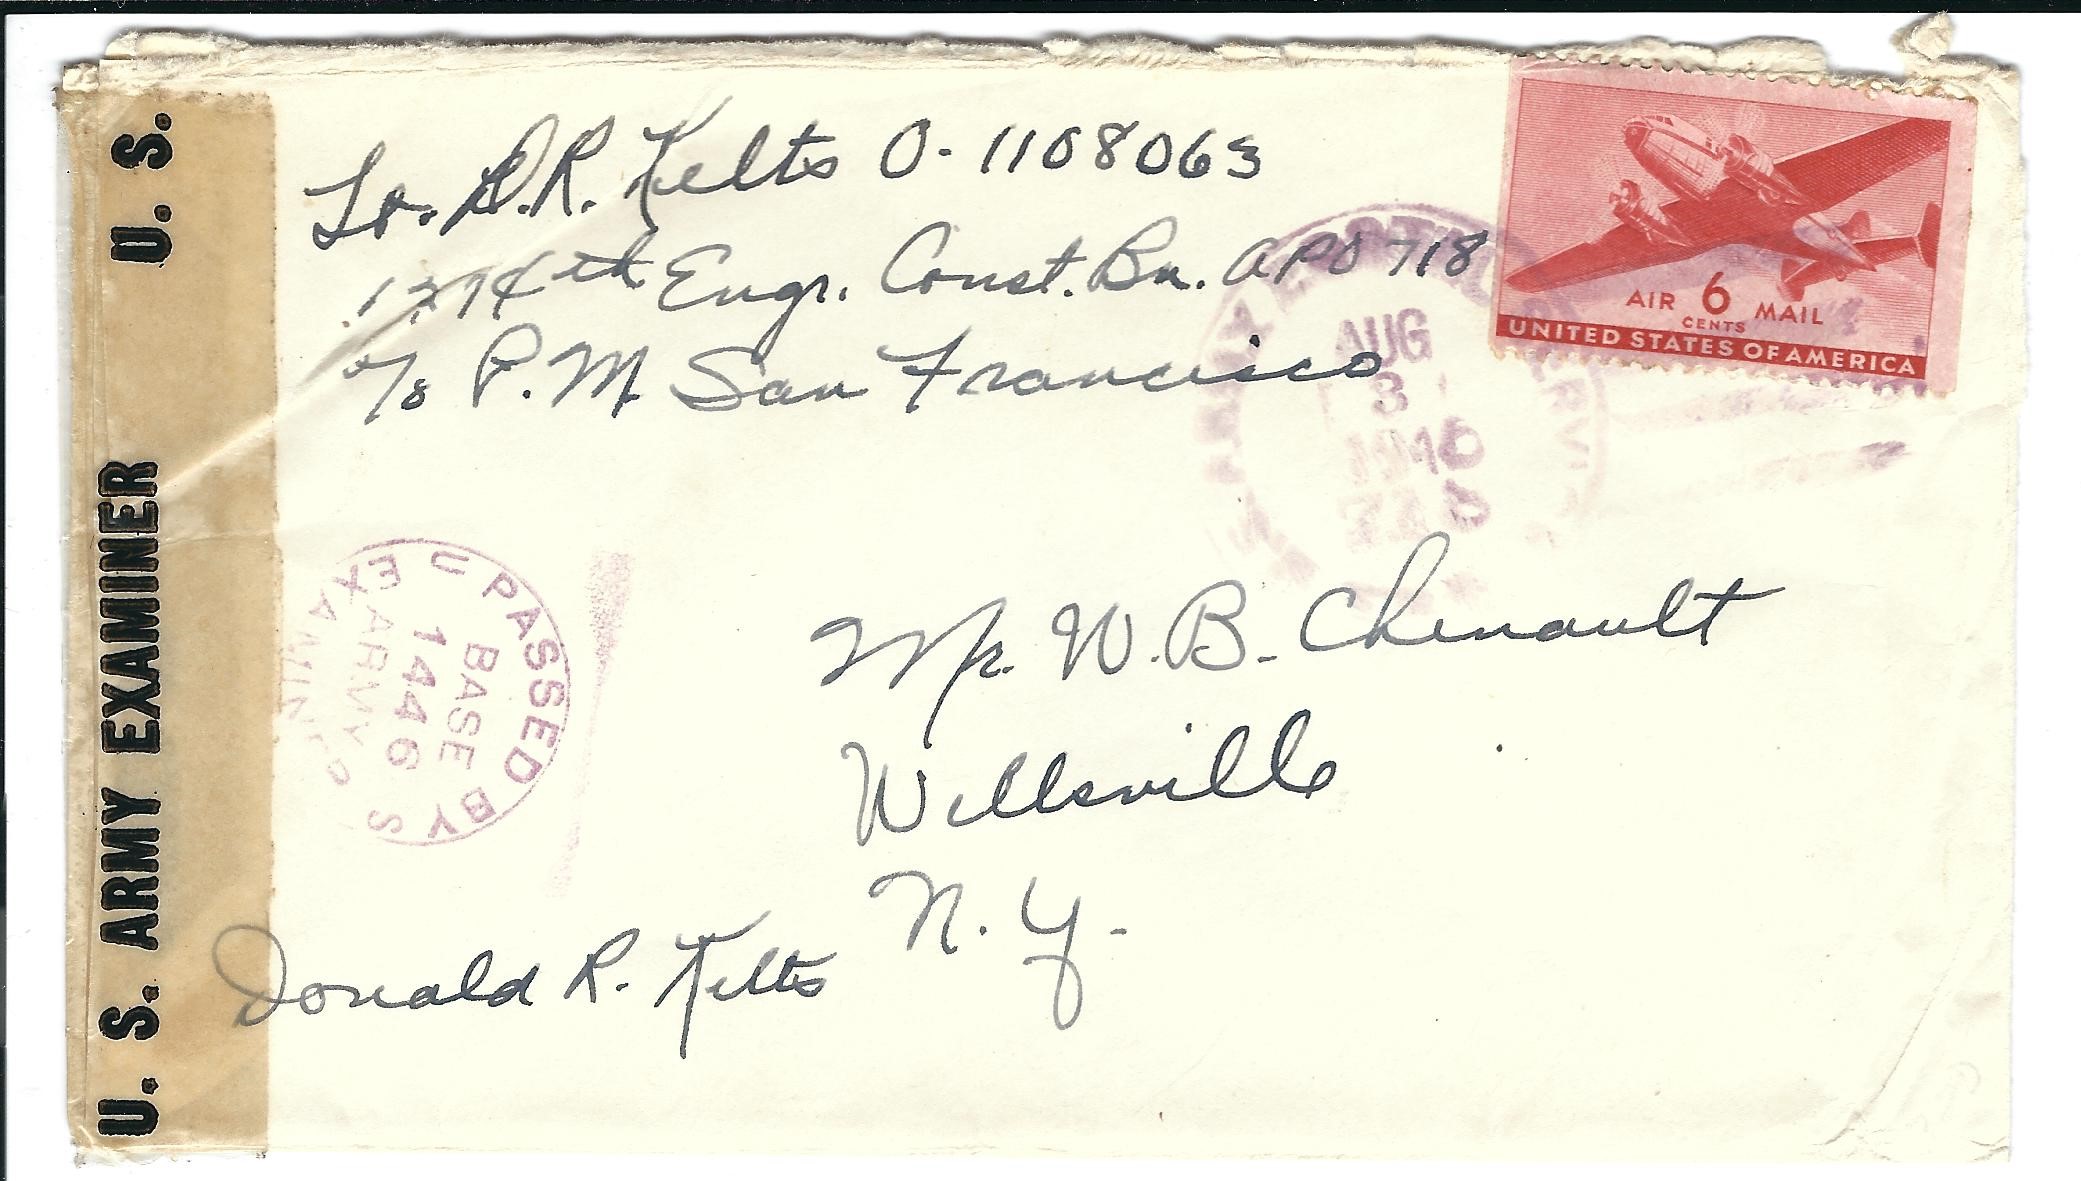 Lt. D.R. Kelts O-1108063
1374th Engr. Const. Bn. APO 718
c/o P.M. San Francisco
AIR 6 MAIL
CENTS
UNITED STATES OF AMERICA
AUG
3
U. S. ARMY EXAMINER U. S.
PASSED BY
U S
BASE
1446
ARMY
EXAMINER
Mr. W. B. Chenault
Wellsville
N. Y.
Donald R. Kelts